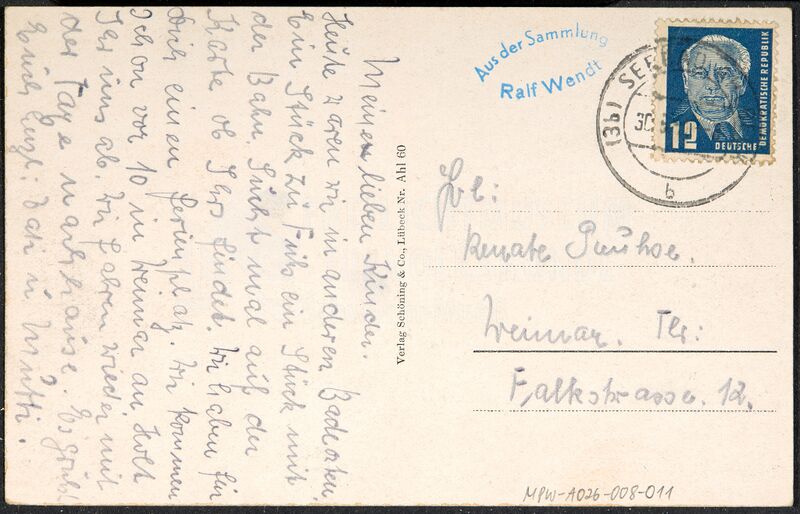 Meine lieben Kinder.
Heute waren wir in anderen Badeorten,
Ein Stück zu Fuß ein Stück mit
der Bahn. Sucht mal auf der
Karte ob Ihrs findet. Wir haben für
Dich einen Ferienplatz. Wir kommen
schon vor 10 in Weimar an Holt
Ihr uns ab. Wir fahren wieder mit
der Tage nachhause. Es grüßt
Euch herzl. Vati u Mutti.
Verlag Schöning & Co., Lübeck Nr. Ahl 60
Aus der Sammlung
Ralf Wendt
(3b) SEEB
30
b
12
DEUTSCHE
DEMOKRATISCHE REPUBLIK
Renate
Weimar. Thr:
Falkstrasse. 12.
MPW-A026-008-011